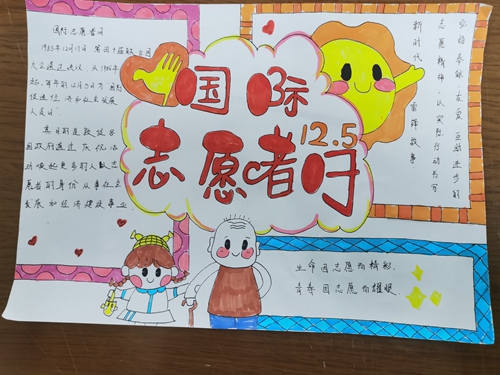 国际志愿者日
12.5
国际志愿者日
1985年12月17日 第四十届联合国
大会通过决议,从1986年
起,每年的12月5日为国际
促进经济和社会发展
人员日
其目的是敦促各
国政府通过庆祝活
动唤起更多的人以志
愿者的身份从事社会
发展和经济建设事业。
弘扬奉献、友爱、互助、进步的
志愿精神,以实际行动书写
新时代的雷锋故事
生命因志愿而精彩,
青春因志愿而耀眼